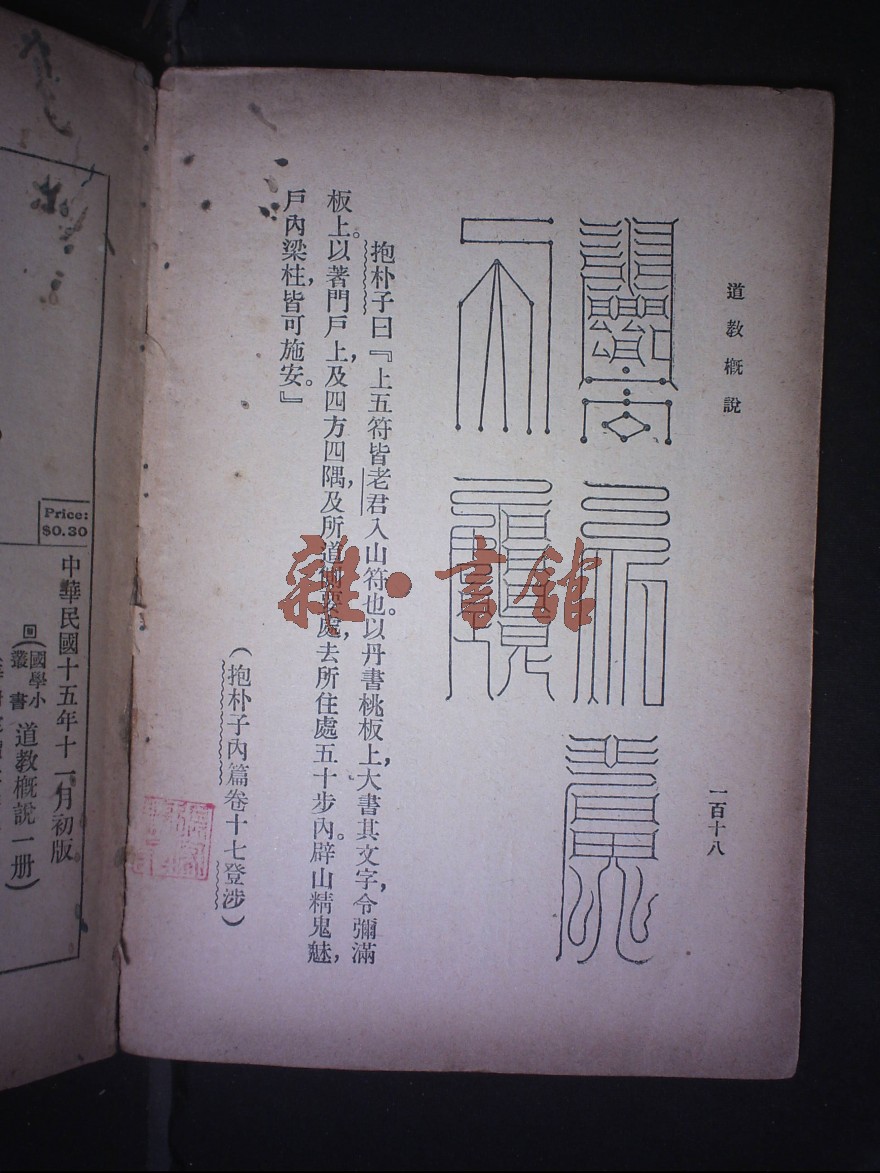 道教概說
一百十八
抱朴子曰『上五符皆老君入山符也。以丹書桃板上，大書其文字，令彌滿
板上。以著門戶上，及四方四隅，及所道側要處，去所住處五十步內。辟山精鬼魅，
戶內梁柱，皆可施安。』
（抱朴子內篇卷十七登涉）
雜·書館
Price:
$0.30
中華民國十五年十一月初版
（國學小
叢書
道教概說一册）